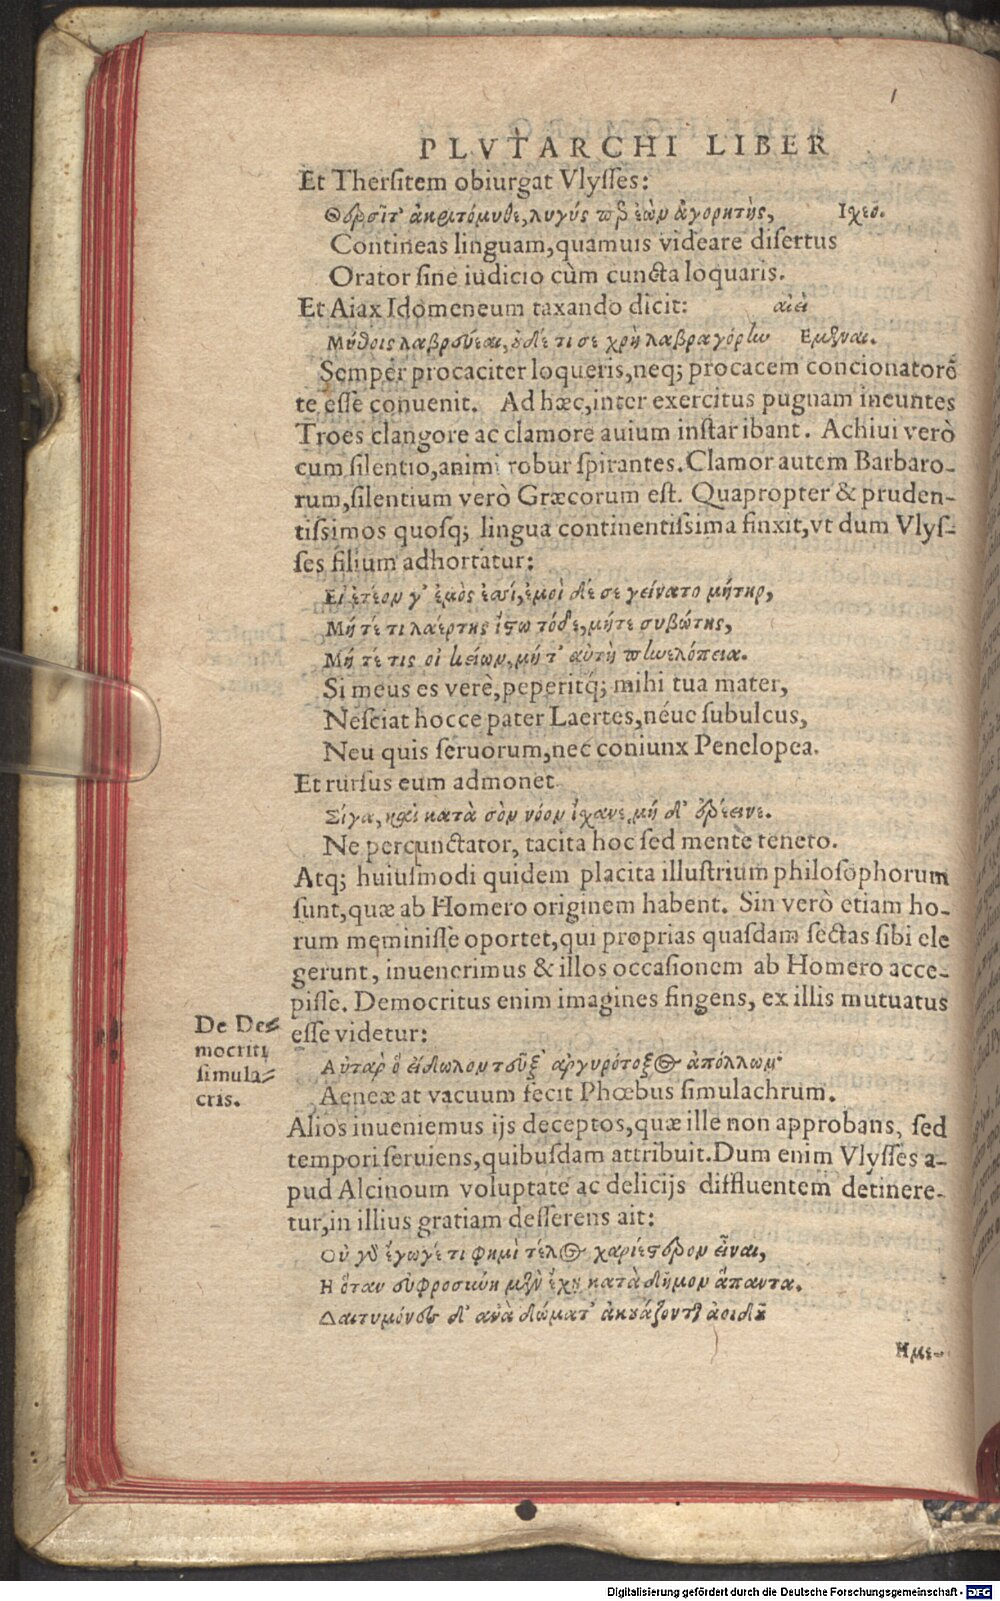 PLVTARCHI LIBER
Et Thersitem obiurgat Vlysses:
Θερσῖτ' ἀκριτόμυθε, λιγύς περ ἐὼν ἀγορητὴς, Ἴχεο.
Contineas linguam, quamuis videare disertus
Orator sine iudicio cùm cuncta loquaris.
Et Aiax Idomeneum taxando dicit: αἰεὶ
Μύθοις λαβρεύεαι, ὀδέ τι σε χρὴ λαβραγόρlω Εμμναι.
Semper procaciter loqueris, neq; procacem concionatorē
te esse conuenit. Ad hæc, inter exercitus pugnam ineuntes
Troes clangore ac clamore auium instar ibant. Achiui verò
cum silentio, animi robur spirantes. Clamor autem Barbaro-
rum, silentium verò Græcorum est. Quapropter & pruden-
tissimos quosq; lingua continentissima finxit, vt dum Vlys-
ses filium adhortatur:
Εἰ ἐτέον γ' ἐμὸς ἐσσί, ἐμοὶ δέ σε γείνατο μήτηρ,
Μή τέ τι λαέρτης ἴστω τόδε, μήτε συβώτης,
Μή τέ τις οἰκείων, μή τ' αὐτὴ πlωελόπεια.
Si meus es verè, peperitq́; mihi tua mater,
Nesciat hocce pater Laertes, néue subulcus,
Neu quis seruorum, nec coniunx Penelopea.
Et rursus eum admonet
Σίγα, καὶ κατὰ σὸν νόον ἴχανε, μή δ' ἐρέεινε.
Ne percunctator, tacita hoc sed mente teneto.
Atq; huiusmodi quidem placita illustrium philosophorum
sunt, quæ ab Homero originem habent. Sin verò etiam ho-
rum meminisse oportet, qui proprias quasdam sectas sibi ele
gerunt, inuenerimus & illos occasionem ab Homero acce-
pisse. Democritus enim imagines fingens, ex illis mutuatus
esse videtur:
De De-
mocriti
simula-
cris.
Αὐτὰρ ὃ εἴδωλον τεῦξ' ἀργυρότοξος ἀπόλλων·
Aeneæ at vacuum fecit Phœbus simulachrum.
Alios inueniemus ijs deceptos, quæ ille non approbans, sed
tempori seruiens, quibusdam attribuit. Dum enim Vlysses a-
pud Alcinoum voluptate ac delicijs diffluentem detinere-
tur, in illius gratiam desserens ait:
Οὐ γὸ ἔγωγέ τι φημὶ τέλος χαριέστερον εἶναι,
Η ὅταν εὐφροσιώη μὲν ἔχῃ κατὰ δῆμον ἅπαντα.
Δαιτυμόνες δ' ἀνὰ δώματ' ἀκουάζονται ἀοιδοῦ
Ημε-
Digitalisierung gefördert durch die Deutsche Forschungsgemeinschaft - DFG